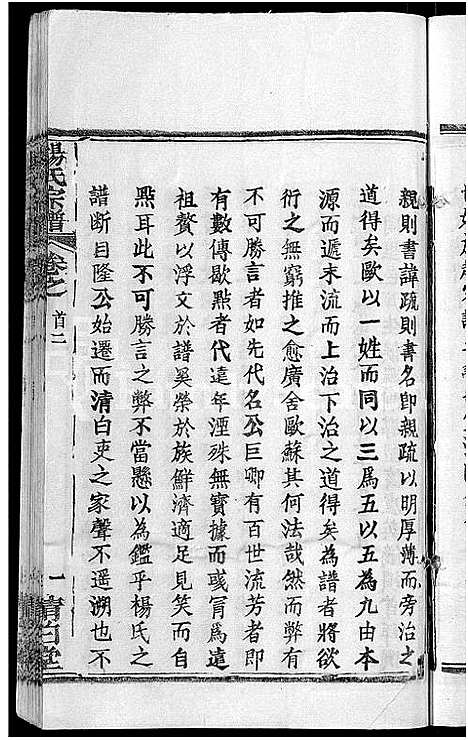 親則書諱疏則書名即親疏以明厚薄而旁治之
道得矣歐以一姓而同以三爲五以五為九由本
源而遞末流而上治下治之道得矣為譜者將欲
衍之無窮推之愈廣舍歐蘇其何法哉然而弊有
不可勝言者如先代名公巨卿有百世流芳者即
有數傳歇㸃者代遠年湮殊無實據而彧冐爲遠
祖贅以浮文於譜奚榮於族鮮濟適足見笑而自
㸃耳此不可勝言之弊不當懸以為鑑乎楊氏之
譜断目隆公始遷而清白吏之家聲不遥溯也不
楊氏宗譜 卷之首二 一 清白堂